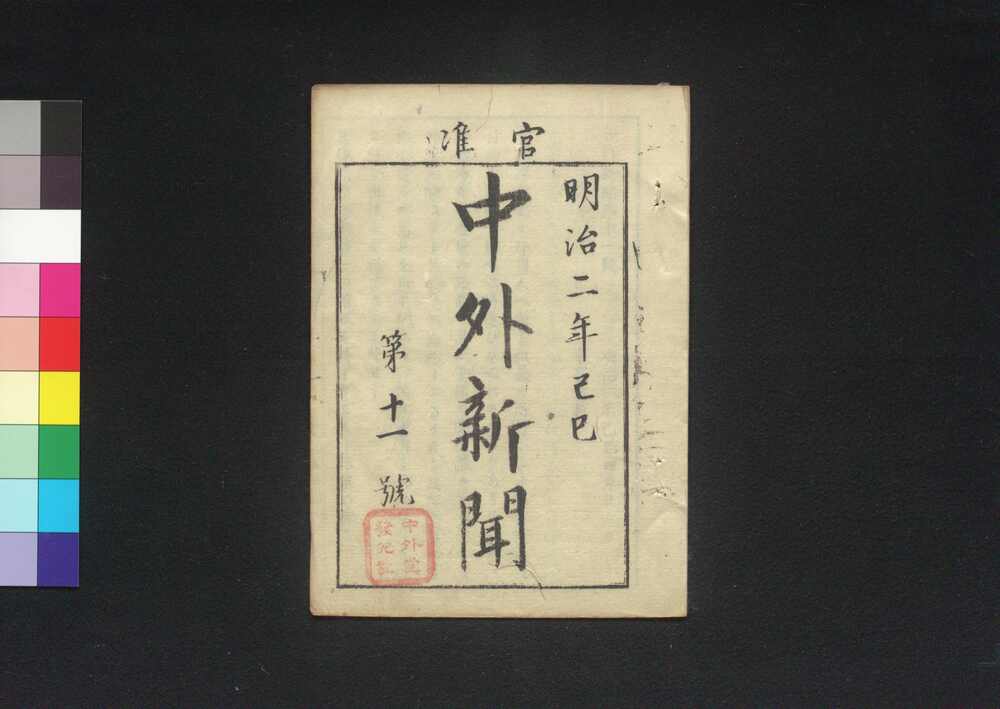 官准
明治二年己巳
中外新聞
第十一號
中外堂
發兌記